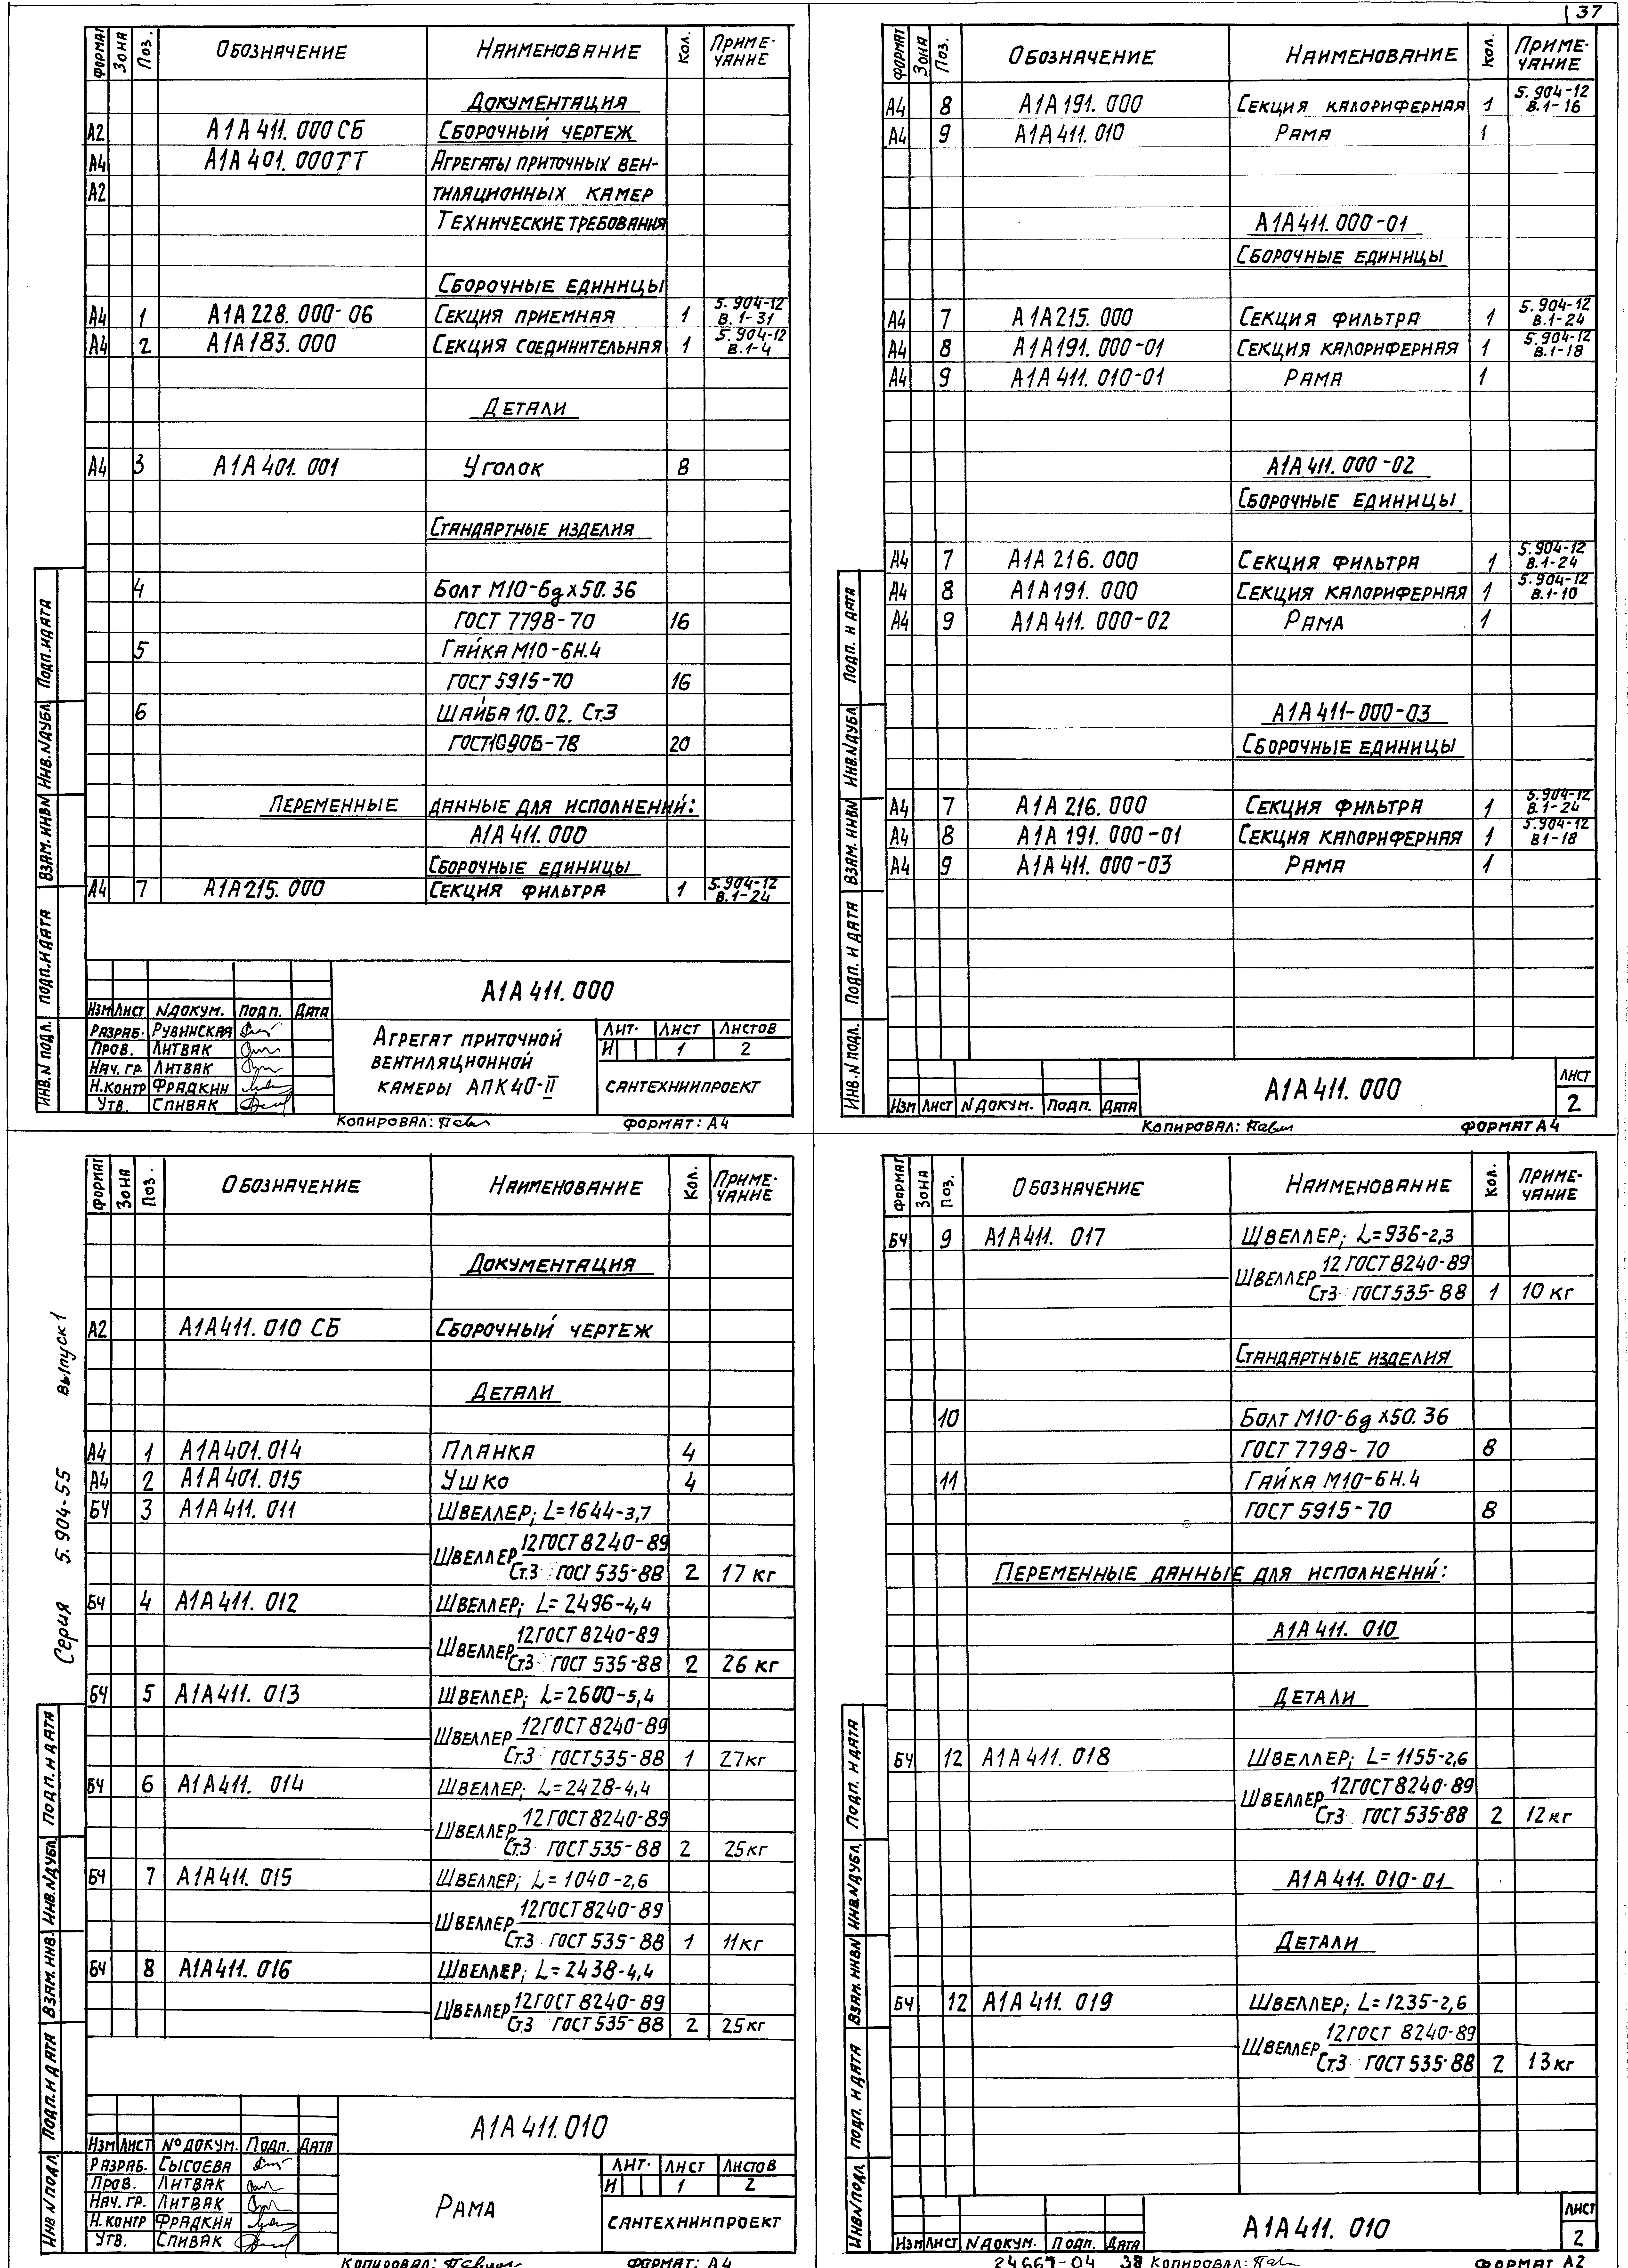 37
Формат Зона Поз. Обозначение Наименование Кол. Примечание
Документация
А2 А1А 411.000 СБ Сборочный чертеж
А4 А1А 401.000ТТ Агрегаты приточных вен-
А2 тиляционных камер
Технические требования
Сборочные единицы
А4 1 А1А 228.000-06 Секция приемная 1 5.904-12 В.1-31
А4 2 А1А 183.000 Секция соединительная 1 5.904-12 В.1-4
Детали
А4 3 А1А 401.001 Уголок 8
Стандартные изделия
4 Болт М10-6g х50.36
ГОСТ 7798-70 16
5 Гайка М10-6Н.4
ГОСТ 5915-70 16
6 Шайба 10.02. Ст.3
ГОСТ10906-78 20
Переменные данные для исполнений:
А1А 411.000
Сборочные единицы
А4 7 А1А 215.000 Секция фильтра 1 5.904-12 В.1-24
А1А 411.000
Изм Лист N докум. Подп. Дата
Разраб. Рувинская
Пров. Литвак
Нач. гр. Литвак
Н.контр Фрадкин
Утв. Спивак
Агрегат приточной
вентиляционной
камеры АПК 40-II
Лит. Лист Листов
И 1 2
Сантехниипроект
Инв.N подл. Подп. и дата Взам. инвN Инв.N дубл. Подп. и дата
Копировал: Формат: А4
Формат Зона Поз. Обозначение Наименование Кол. Примечание
А4 8 А1А 191.000 Секция калориферная 1 5.904-12 В.1-16
А4 9 А1А 411.010 Рама 1
А1А 411.000-01
Сборочные единицы
А4 7 А1А 215.000 Секция фильтра 1 5.904-12 В.1-24
А4 8 А1А 191.000-01 Секция калориферная 1 5.904-12 В.1-18
А4 9 А1А 411.010-01 Рама 1
А1А 411.000-02
Сборочные единицы
А4 7 А1А 216.000 Секция фильтра 1 5.904-12 В.1-24
А4 8 А1А 191.000 Секция калориферная 1 5.904-12 В.1-10
А4 9 А1А 411.000-02 Рама 1
А1А 411-000-03
Сборочные единицы
А4 7 А1А 216.000 Секция фильтра 1 5.904-12 В.1-24
А4 8 А1А 191.000-01 Секция калориферная 1 5.904-12 В1-18
А4 9 А1А 411.000-03 Рама 1
Изм Лист N докум. Подп. Дата
А1А 411.000
Лист
2
Инв.N подл. Подп. и дата Взам. инвN Инв.N дубл Подп. и дата
Копировал: Формат А4
Серия 5.904-55 Выпуск 1
Формат Зона Поз. Обозначение Наименование Кол. Примечание
Документация
А2 А1А 411.010 СБ Сборочный чертеж
Детали
А4 1 А1А 401.014 Планка 4
А4 2 А1А 401.015 Ушко 4
БЧ 3 А1А 411.011 Швеллер; L=1644-3,7
Швеллер 12 ГОСТ 8240-89
Ст.3 ГОСТ 535-88 2 17 кг
БЧ 4 А1А 411.012 Швеллер; L=2496-4,4
Швеллер 12 ГОСТ 8240-89
Ст.3 ГОСТ 535-88 2 26 кг
БЧ 5 А1А 411.013 Швеллер; L=2600-5,4
Швеллер 12 ГОСТ 8240-89
Ст.3 ГОСТ 535-88 1 27 кг
БЧ 6 А1А 411.014 Швеллер; L=2428-4,4
Швеллер 12 ГОСТ 8240-89
Ст.3 ГОСТ 535-88 2 25 кг
БЧ 7 А1А 411.015 Швеллер; L=1040-2,6
Швеллер 12 ГОСТ 8240-89
Ст.3 ГОСТ 535-88 1 11 кг
БЧ 8 А1А 411.016 Швеллер; L=2438-4,4
Швеллер 12 ГОСТ 8240-89
Ст.3 ГОСТ 535-88 2 25 кг
А1А 411.010
Изм Лист № докум. Подп. Дата
Разраб. Сысоева
Пров. Литвак
Нач. гр. Литвак
Н.контр Фрадкин
Утв. Спивак
Рама
Лит. Лист Листов
И 1 2
Сантехниипроект
Инв N подл. Подп. и дата Взам. инв. Инв.N дубл. Подп. и дата
Копировал: Формат: А4
Формат Зона Поз. Обозначение Наименование Кол. Примечание
БЧ 9 А1А 411.017 Швеллер; L=936-2,3
Швеллер 12 ГОСТ 8240-89
Ст3 ГОСТ 535-88 1 10 кг
Стандартные изделия
10 Болт М10-6g х50.36
ГОСТ 7798-70 8
11 Гайка М10-6Н.4
ГОСТ 5915-70 8
Переменные данные для исполнений:
А1А 411.010
Детали
БЧ 12 А1А 411.018 Швеллер; L=1155-2,6
Швеллер 12 ГОСТ 8240-89
Ст.3 ГОСТ 535-88 2 12 кг
А1А 411.010-01
Детали
БЧ 12 А1А 411.019 Швеллер; L=1235-2,6
Швеллер 12 ГОСТ 8240-89
Ст.3 ГОСТ 535-88 2 13 кг
Изм Лист N докум. Подп. Дата
А1А 411.010
Лист
2
Инв.N подл. Подп. и дата Взам. инвN Инв.N дубл. Подп. и дата
24667-04 38 Копировал: Формат А2